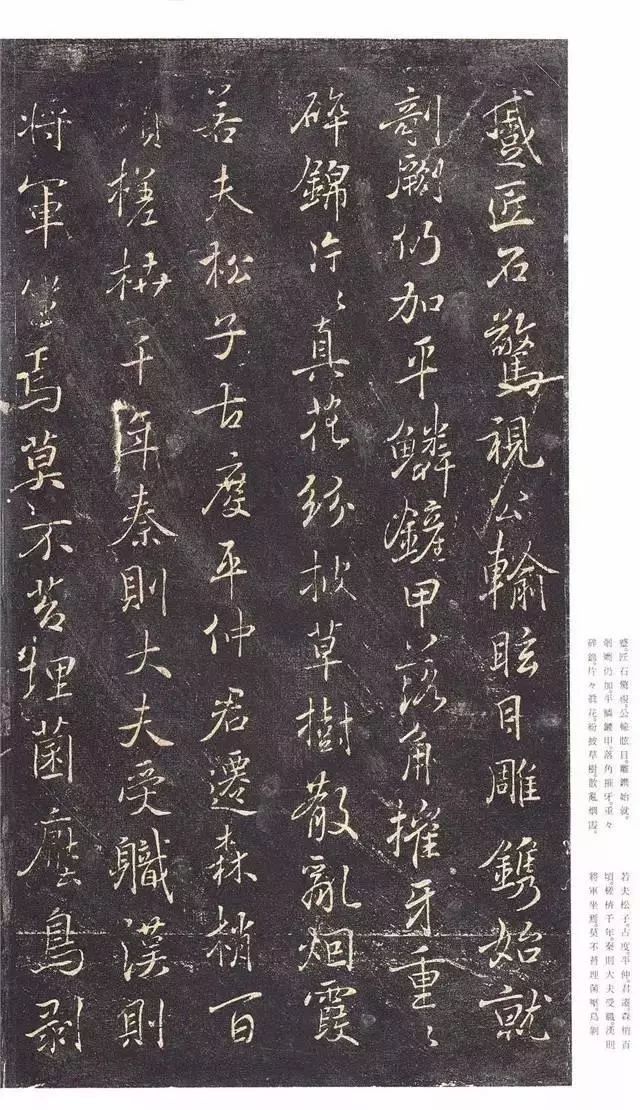 蹙匠石驚視公輸眩目雕鐫始就
剞劂仍加平鱗鏟甲落角摧牙重〻
碎錦片〻真花紛披草樹散亂烟霞
若夫松子古度平仲君遷森梢百
頃槎枿千年秦則大夫受職漢則
将軍坐焉莫不苔埋菌壓鳥剥
蹙。匠石驚視。公輸眩目。雕鐫始就。
剞劂仍加。平鱗鏟甲。落角摧牙。重々
碎錦。片々眞花。紛披草樹。散亂烟霞。
若夫松子。古度。平仲。君遷。森梢百
頃。槎枿千年。秦則大夫受職。漢則
將軍坐焉。莫不苔埋菌壓。鳥剝